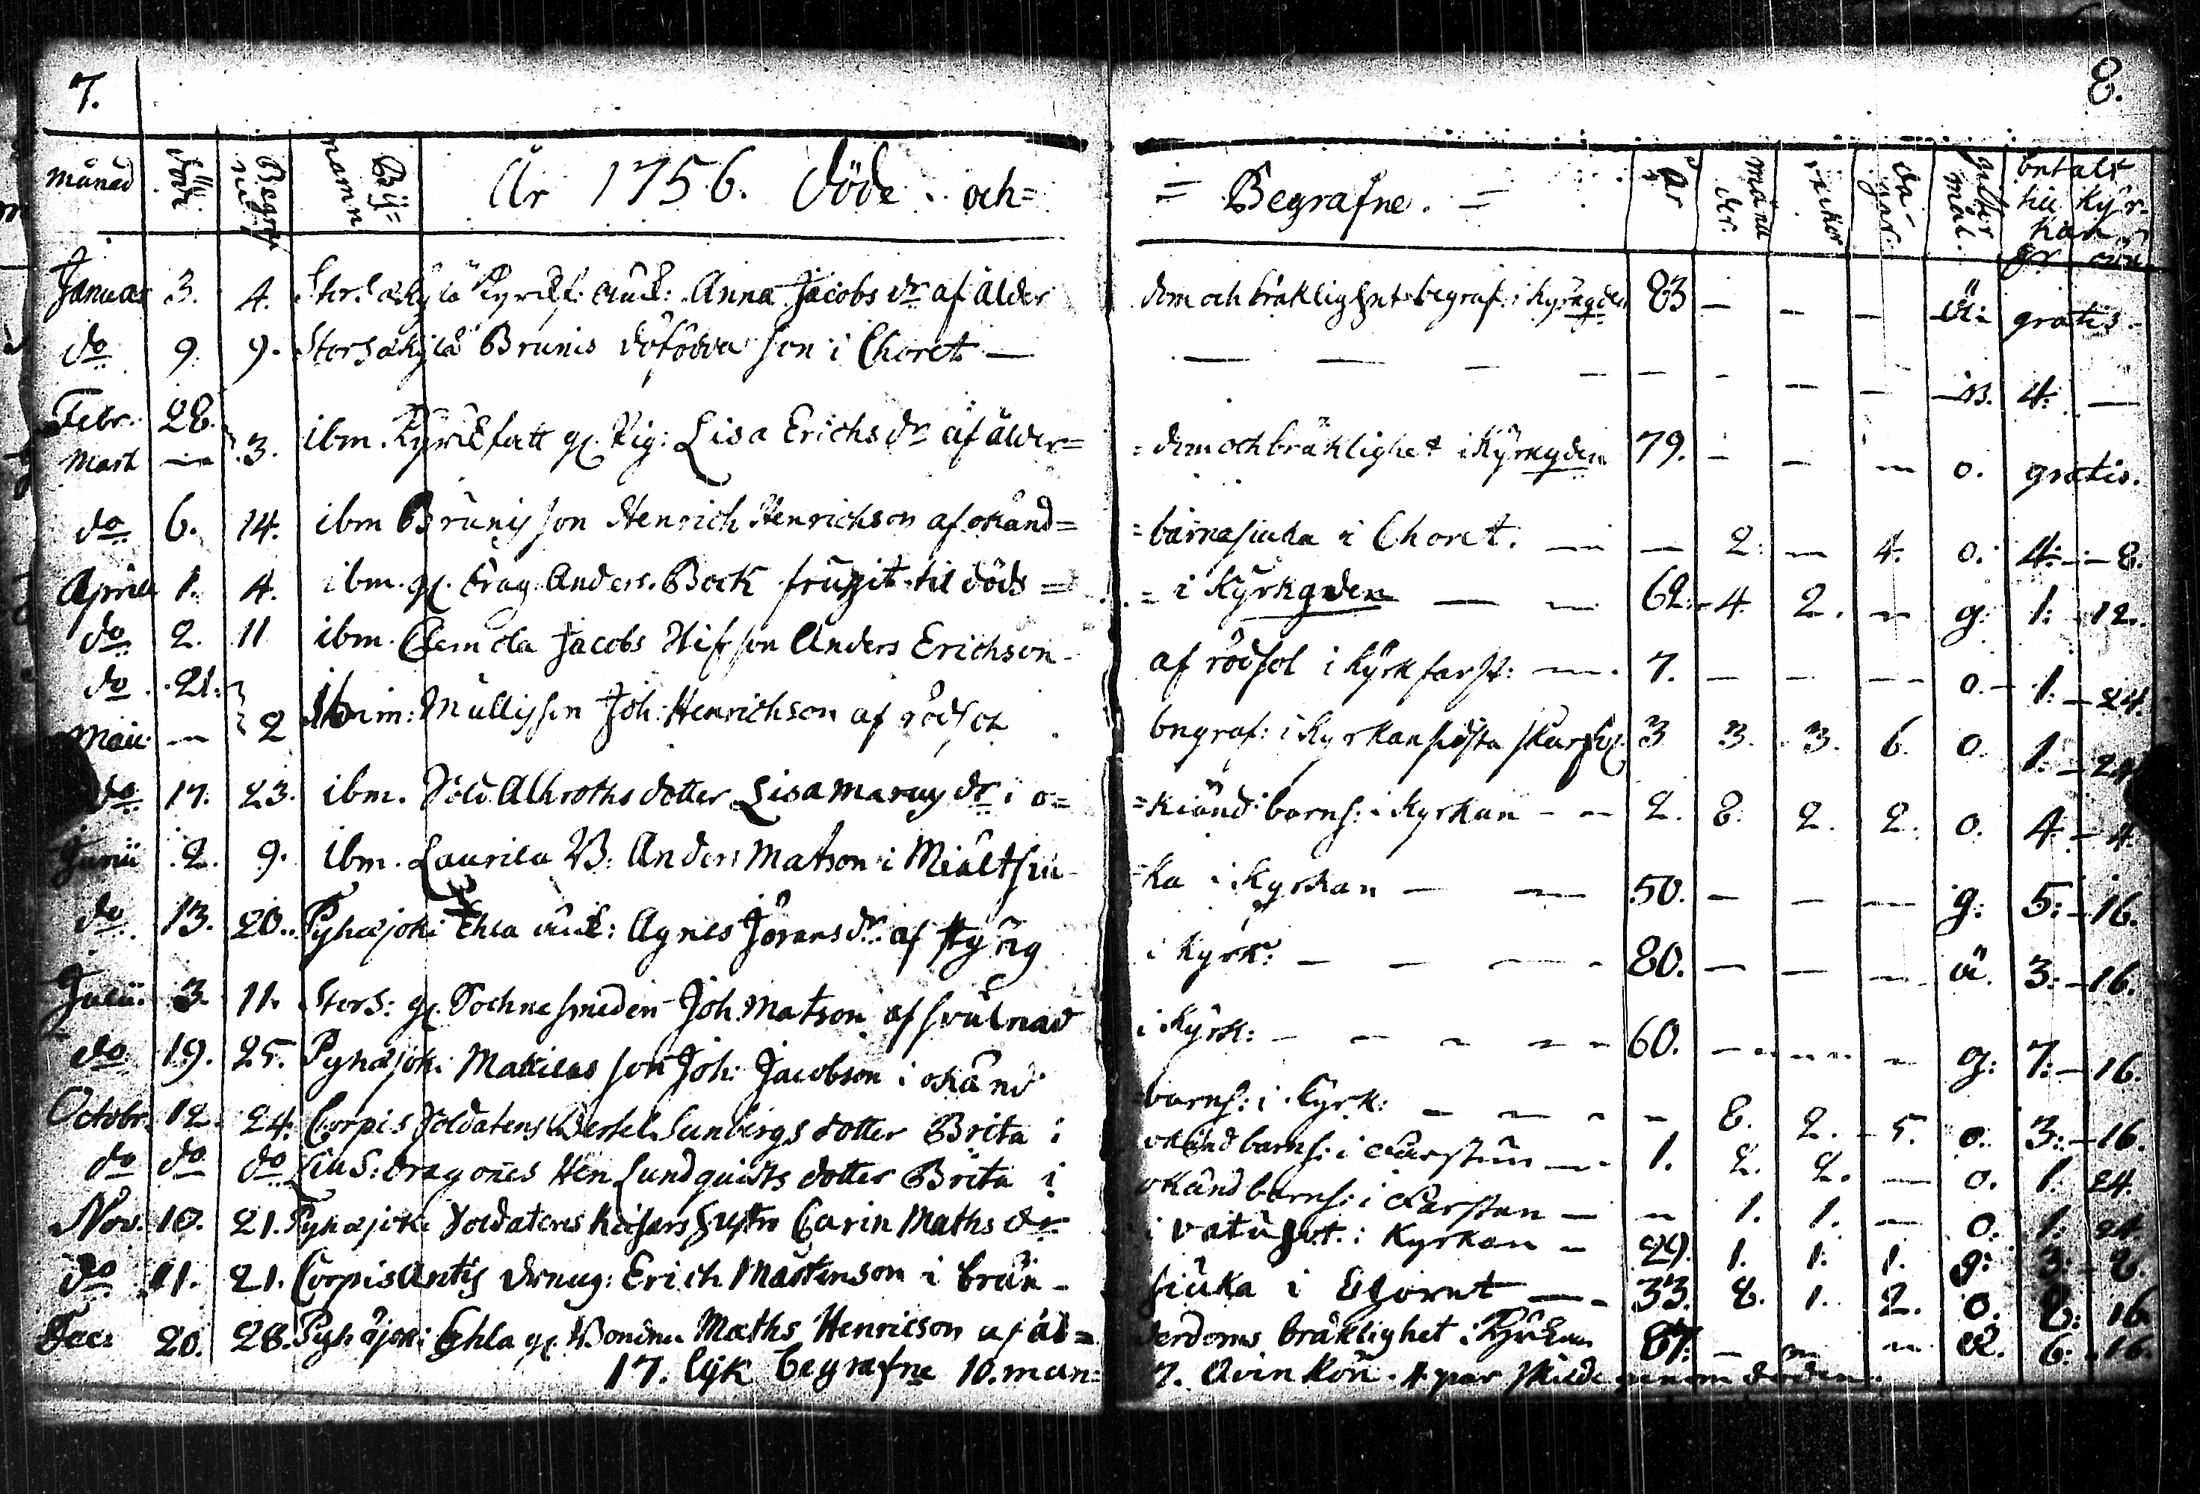 7.
8.
månad död Begr: Bÿ= namn År 1756. döde och= = Begrafne. = år måna der. vickor da- gar. ålder mål. betalt till Kÿr- kan
Januar 3. 4. Anna Jacobs dr af ålder dom och bräklighet begraf: i Kyrkgden 83 — — — ä: gratis
do 9. 9. Brunis dödfödda son i Choret — — — — — — — — 4. —
Febr. 28.
Mart — 3. ibm. Lisa Erichs dr af ålder= =dom och bräklighet i Kÿrkgden 79. — — — o. gratis.
do 6. 14. ibm Brunis son Henrich Henrichson af okänd= =barnasiuka i Choret. — — 2. — 4. o. 4. — 8.
Aprill 1. 4. ibm. gl. Drag Anders Bock til döds = = i Kÿrkgden — — 62. 4. 2. — g. 1. 12.
do 2. 11 ibm. Clemola Jacobs Stif son Anders Erichson af rödsot i Kÿrk — 7. — — — o. 1. — 24.
do 21.
Maii — 2 Ibim: Mullis son Joh: Henrichson af rödsot begraf: i Kyrkan 3 3. 3. 6. o. 1. — 24
do 17. 23. ibm. Sold Alhroths dotter Lisa Maria dr i o= =kiänd barns: i Kyrkan — — 2. 8. 2. 2. o. 4. — 4.
Junii 2. 9. ibm. Laurila B: Anders Matson i Miältsiu- =ka i Kyrkan — — 50. — — — g: 5: — 16.
do 13. 20. Pyhäjoki Ehla Agnes Jörans dr af styng i Kÿrk: — — — — 80. — — — ä. 3: — 16.
Julii. 3. 11. Stors: gl. Sockne smeden Joh. Matson af svulnad i Kyrk: — — — — — 60. — — — g: 7: — 16.
do 19. 25. Pyhäjoki Mattilas son Joh: Jacobson i okänd =barns: i Kyrk: — — — — 8. 2. 5. o. 3: — 16.
Octobr. 12. 24. Corpis Soldatens dotter Brita i okänd barns: i — 1. 2. 2. — o. 1. 24.
do do do dragones Hen Lundquists dotter Brita i okänd barns: i — — 1. 1. — o. 1: 24
Nov. 10. 21. Pyhäjoki Soldatens hustru Carin Maths dr i vatusot: i Kyrkan — 29. 1. 1. 1. g: 3: 8.
do 11. 21. Corpis Erich Mårtenson i brän- siuka i Choret — 33. 8. 1. 2. o. 8: 16
Dec: 20. 28. Pyhäjoki Ehla gl. Bonden Maths Henricson af ål= derdoms bräklighet i 87: — — — ä. 6: 16.
17. lijk begrafne 10. man= 7. qvin kön. 4 par skilde genom döden.